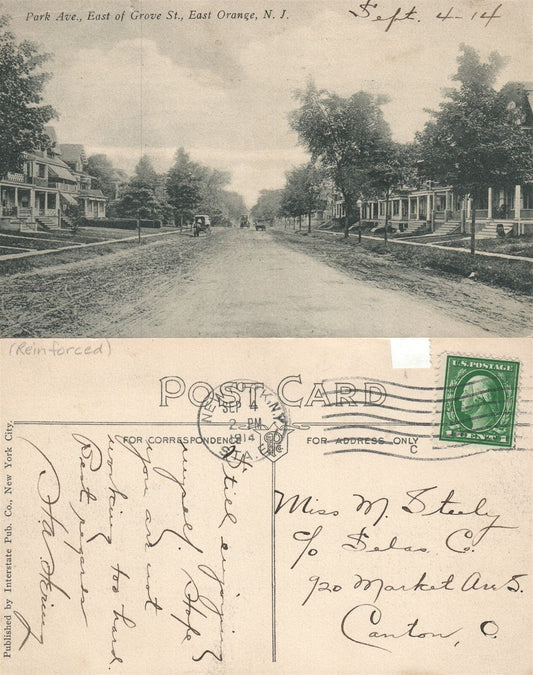 Park Ave., East of Grove St., East Orange, N. J.
Sept. 4-14
(Reinforced)
POST CARD
SEP 4
2 PM
1914
STA. E
C
U.S. POSTAGE
1 CENT 1
FOR CORRESPONDENCE
FOR ADDRESS ONLY
Published by Interstate Pub. Co., New York City.
Still enjoying
myself. Hope
you are not
working too hard.
Best regards
Miss M. Steely
c/o Co.
920 Market Av S.
Canton, O.